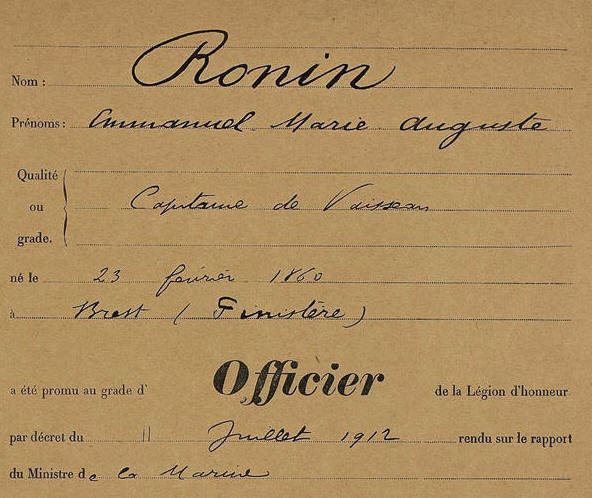 Nom : Ronin
Prénoms : Emmanuel Marie Auguste
Qualité
ou Capitaine de Vaisseau
grade.
né le 23 février 1860
à Brest (Finistère)
a été promu au grade d' Officier de la Légion d'honneur
par décret du 11 Juillet 1912 rendu sur le rapport
du Ministre de la Marine